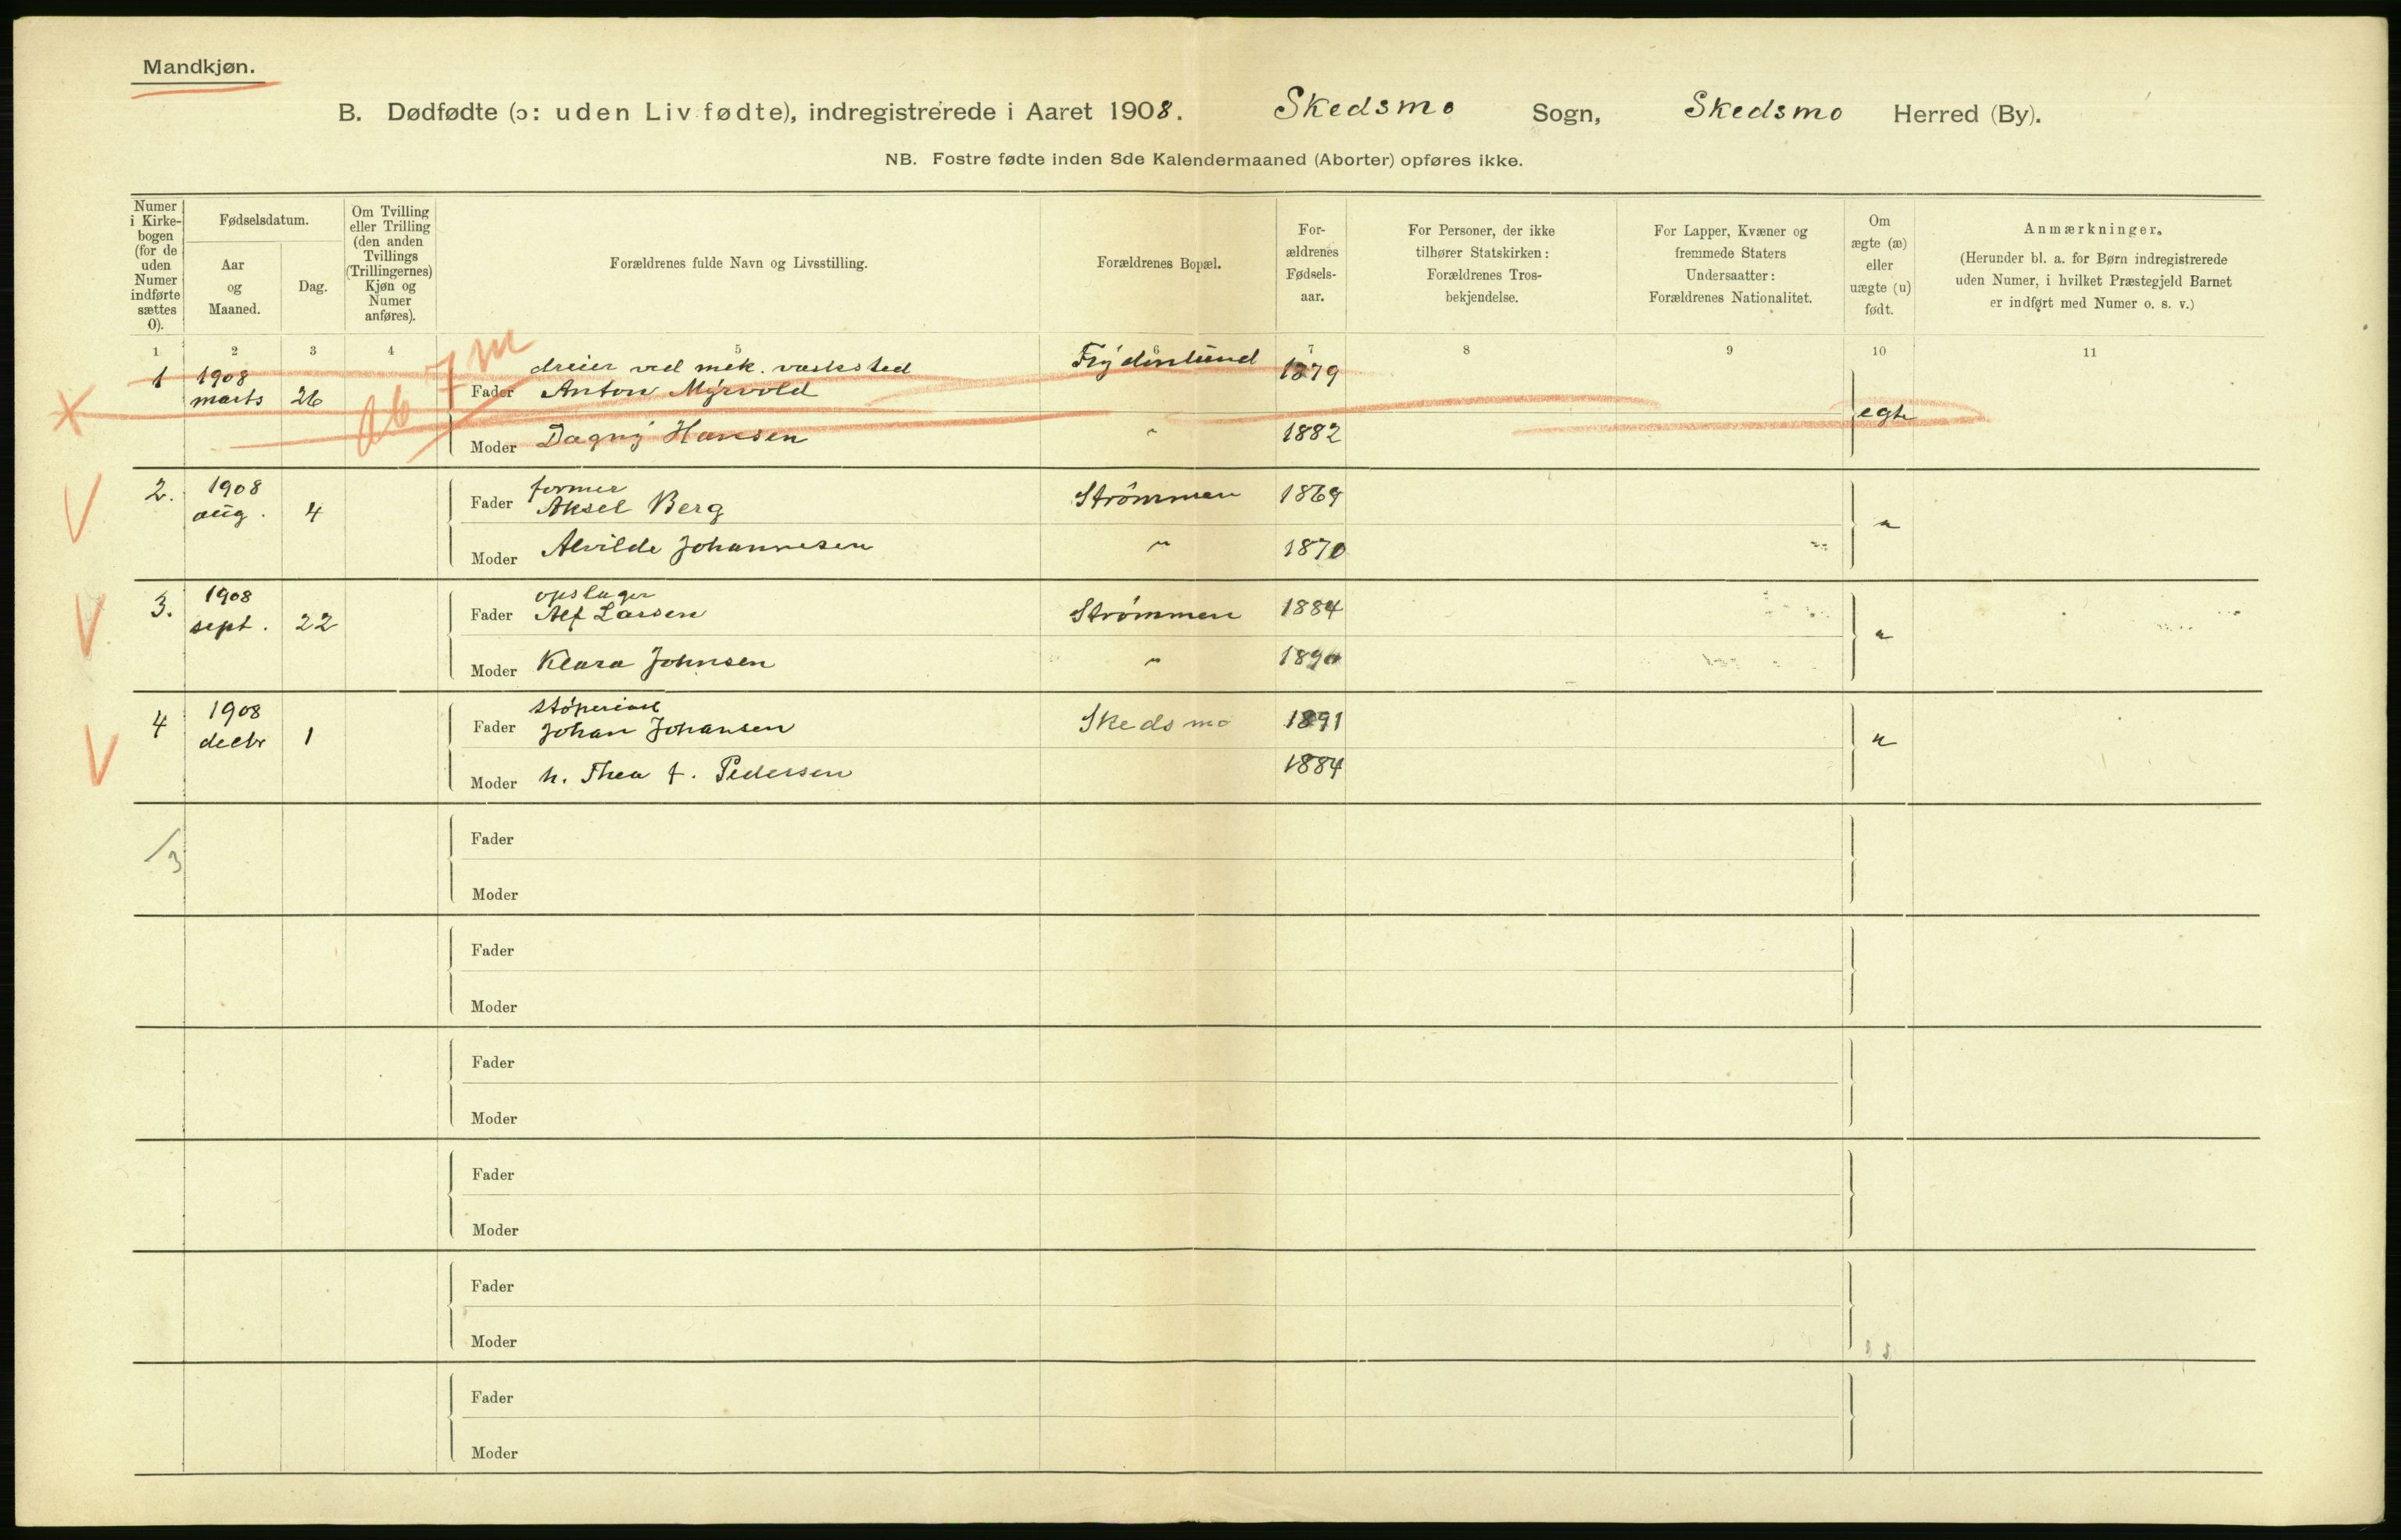 Mandkjøn.
B. Dødfødte (ɔ: uden Liv fødte), indregistrerede i Aaret 1908. Skedsmo Sogn, Skedsmo Herred (By).
NB. Fostre fødte inden 8de Kalendermaaned (Aborter) opføres ikke.
Numer i Kirkebogen (for de uden Numer indførte sættes 0).
Fødselsdatum.
Aar og Maaned.
Dag.
Om Tvilling eller Trilling (den anden Tvillings (Trillingernes) Kjøn og Numer anføres).
Forældrenes fulde Navn og Livsstilling.
Forældrenes Bopæl.
Forældrenes Fødselsaar.
For Personer, der ikke tilhører Statskirken: Forældrenes Trosbekjendelse.
For Lapper, Kvæner og fremmede Staters Undersaatter: Forældrenes Nationalitet.
Om ægte (æ) eller uægte (u) født.
Anmærkninger.
(Herunder bl. a. for Børn indregistrerede uden Numer, i hvilket Præstegjeld Barnet er indført med Numer o. s. v.)
1 2 3 4 5 6 7 8 9 10 11
7 m
dreier ved mek. verksted
1 1908 marts 26 Fader Anton Myrvold Frydenlund 1879
ab
Moder Dagny Hansen " 1882 egte
former
2. 1908 aug. 4 Fader Aksel Berg Strömmen 1869
Moder Alvilde Johannesen " 1870 "
opslager
3. 1908 sept. 22 Fader Alf Larsen Strömmen 1884
Moder Klara Johnsen " 1890 "
4 1908 decbr 1 Fader Johan Johansen Skedsmo 1891
Moder h. Thea f. Pedersen 1884
/3
Fader
Moder
Fader
Moder
Fader
Moder
Fader
Moder
Fader
Moder
Fader
Moder